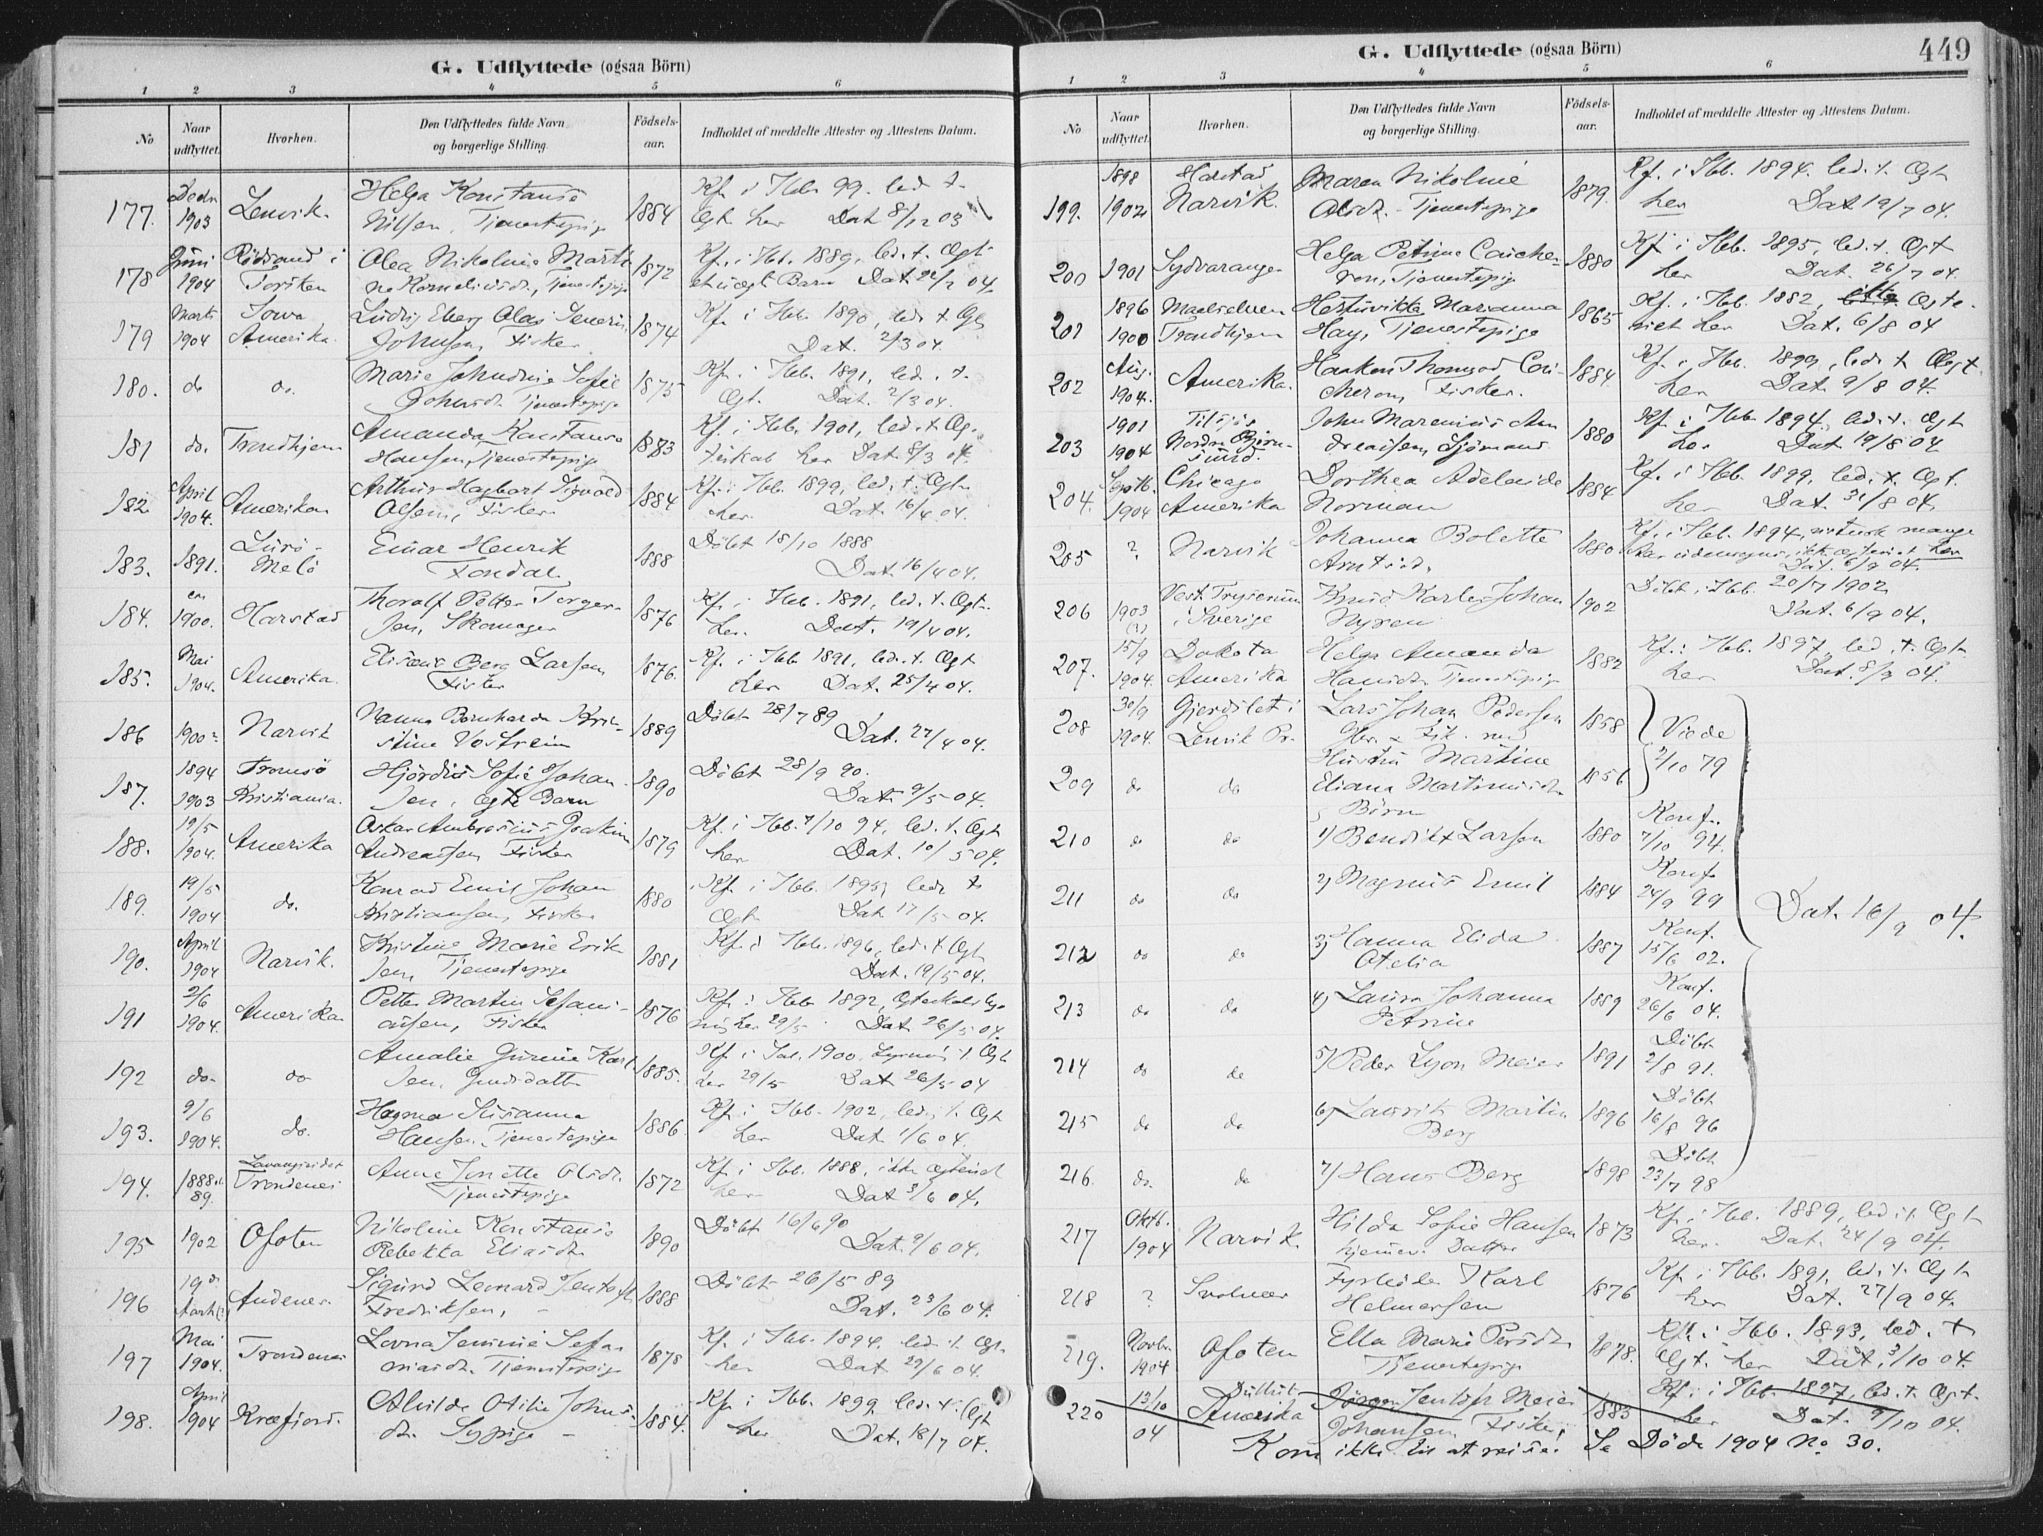 G. Udflyttede (ogsaa Börn)
1 2 3 4 5 6
No Naar udflyttet. Hvorhen. Den Udflyttedes fulde Navn og borgerlige Stilling. Födsels-aar. Indholdet af meddelte Attester og Attestens Datum.
177. 1903 Lenvik. Helga Konstanse 1884 Kf. i Hbb 99. led. t.
Nilsen, Tjenestepige Ægt. her Dat 8/12 03
178 Juni 1904 Rödsand i Torsken Olea Nikoline Marti- 1872 Kf. i Hbb. 1889, led. t. Ægt.
ne Korneliusd., Tjenestepige et uægt Barn
179 Marts 1904 Iowa Amerika. Ludvig Eberg Olai 1874 Kf. i Hbb 1890, led. t. Ægt
Johnsen, Fisker Dat. 2/3 04.
180. do do. Marie Sofie 1875 Kf. i Hbb. 1891, led. t.
Tjenestepige Ægt. Dat. 2/3 04.
181 do. Trondhjem Amanda Konstanse 1883 Kf. i Hbb. 1901, led. t. Æg-
Hansen, Tjenestepige teskab her Dat 8/3 04.
182. April 1904. Amerika Arthur Hagbart 1884 Kf. i Hbb. 1899, led. t. Ægt.
Olsen, Fisker her. Dat. 16/4 04.
183. 1891. Lurö- Melö Einar Henrik 1888 Döbt 18/10 1888
Fondal Dat. 16/4 04.
184. 1900. Harstad Thoralf Petter Torger- 1876 Kf. i Hbb. 1891, led. t. Ægt.
sen, Skomager her. Dat. 19/4 04.
185. Mai 1904. Amerika. Berg Larsen 1876. Kf. i Hbb 1891, led. t. Ægt
Fisker her Dat. 25/4 04.
186 1900? Narvik Nanna Bernharda Kri- 1889 Döbt 28/7 89
stine Dat. 27/4 04.
187. 1894 1903 Tromsö Kristiania. Hjördis Sofie Johan- 1890 Döbt 28/9 90.
sen, Ægte Barn Dat. 9/5 04.
188. 19/5 1904. Amerika Oskar Ambrosius Joakim 1879 Kf. i Hbb. 7/10 94, led. t. Ægt
Andreassen, Fisker her Dat. 10/5 04.
189. 19/5 1904 do. Konrad Emil Johan 1880 Kf. i Hbb. 1895, led. t.
Kristiansen, Fisker Ægt. Dat 17/5 04.
190. April 1904 Narvik. Kristine Marie Erik- 1881 Kf. i Hbb. 1896, led. t. Ægt
sen, Tjenestepige Dat. 19/5 04.
191 2/6 1904. Amerika Petter Martin 1876 Kf. i Hbb 1892,
Fisker her 29/5 Dat 26/5 04.
192 do. do Amalie Karl- 1885. Kf. i 1900,
sen, her 29/5 Dat 26/5 04
193. 9/6 1904. do. Hagna Susanna 1886. Kf. i Hbb. 1902, led. t. Ægt
Hansen, Tjenestepige her Dat 1/6 04.
194. 1888 el 89. Trondenes Anne Jonette Olsd. 1872 Kf. i Hbb. 1888, ikke
Tjenestepige her Dat 3/6 04.
195 1902 Ofoten Nikoline Konstanse 1890 Döbt 16/6 90
Rebekka Eliasd. Dat. 9/6 04.
196 Andenes. Sigurd Leonard Jentoft 1888 Döbt 26/5 89
Fredriksen, Dat. 23/6 04.
197 Mai 1904. Trondenes Lovna Jenine 1878 Kf. i Hbb. 1894, led. t. Ægt.
Tjenestepige her Dat 29/6 04.
198. April 1904 Kvæfjord. Alvilde Otilie Johns- 1884. Kf. i Hbb. 1899, led. t. Ægt
d. Sypige her Dat. 18/7 04.
G. Udflyttede (ogsaa Börn) 449
1 2 3 4 5 6
No Naar udflyttet. Hvorhen. Den Udflyttedes fulde Navn og borgerlige Stilling. Födsels-aar. Indholdet af meddelte Attester og Attestens Datum.
199. 1898 1902 Harstad Narvik. Maren Nikoline 1879. Kf. i Hbb. 1894. led. t. Ægt
Olsd. - Tjenestepige her Dat 19/7 04.
200 1901 Sydvaranger Helga Petrine 1880 Kf. i Hbb. 1895, led. t. Ægt
Tjenestepig her Dat. 26/7 04.
201 1896 1900 Maalselven Trondhjem Marianna 1865 Kf. i Hbb. 1882, ikke Ægte-
Hay, Tjenestepige viet her Dat. 6/8 04
202 Aug. 1904. Amerika. Haakon 1884 Kf. i Hbb. 1899, led. t. Ægt
Fisker. her Dat. 9/8 04.
203 1901 1904 Nordre John Marenius An- 1880 Kf. i Hbb. 1894, led. t. Ægt
dreassen, Sjömand her Dat 19/8 04
204. Septb. 1904 Chicago Amerika Dorthea Adelaide 1884 Kf. i Hbb. 1899, led. t. Ægt.
Norman her Dat. 31/8 04.
205 ? Narvik Johanna Bolette 1880 Kf. i Hbb. 1894,
Arntsd. Dat. 6/9 04.
206 1903 (?) i Sverige Knud Karles Johan 1902 Döbt i Hbb. 20/7 1902
Nyren Dat. 6/9 04.
207. 15/9 1904. Dakota Amerika Helga Amanda 1882 Kf. i Hbb. 1897, led. t. Ægt.
Hansd. Tjenestepig her Dat. 8/9 04.
208 30/9 1904. i Lenvik Pr. Lars Johan Pedersen 1858 Viede
209 do do Hustru Martine 1856 2/10 79
Eliana
Börn
210 do do 1) Bendikt Larsen 1880 Konf. 7/10 94.
211 do do 2) Magnus Emil 1884 Konf. 24/9 99
Dat. 16/9 04.
212 do do 3) Hanna Elida 1887 Konf. 15/6 02.
Otelia
213 do do 4) Laura Johanna 1889 Konf. 26/6 04.
Petrine
214 do do 5) Peder Lyon Meier 1891 Döbt 2/8 91.
215 do do 6) Laurits Martin 1896 Döbt 16/8 96
Berg
216. do. do 7) Hans Berg 1898 Döbt 23/7 98
217 Oktb. 1904 Narvik. Hilda Sofie Hansen 1873 Kf. i Hbb. 1889, led. t. Ægt
hjemmev. Datter her. Dat. 24/9 04.
218 ? Svolvær Karl 1876 Kf. i Hbb. 1891, led. t. Ægt.
Helmersen her Dat. 27/9 04.
219. Novbr. 1904 Ofoten Ella Marie Persd. 1878. Kf. i Hbb. 1893, led. t
Tjenestepige Ægt. her Dat. 3/10 04.
220 13/10 04 Duluth Amerika Jörgen Jentoft Meier 1883 Kf. i Hbb. 1897, led. t. Ægt.
Johansen Fisker, her Dat. 9/10 04.
Kom ikke til at reise. Se Döde 1904 No 30.